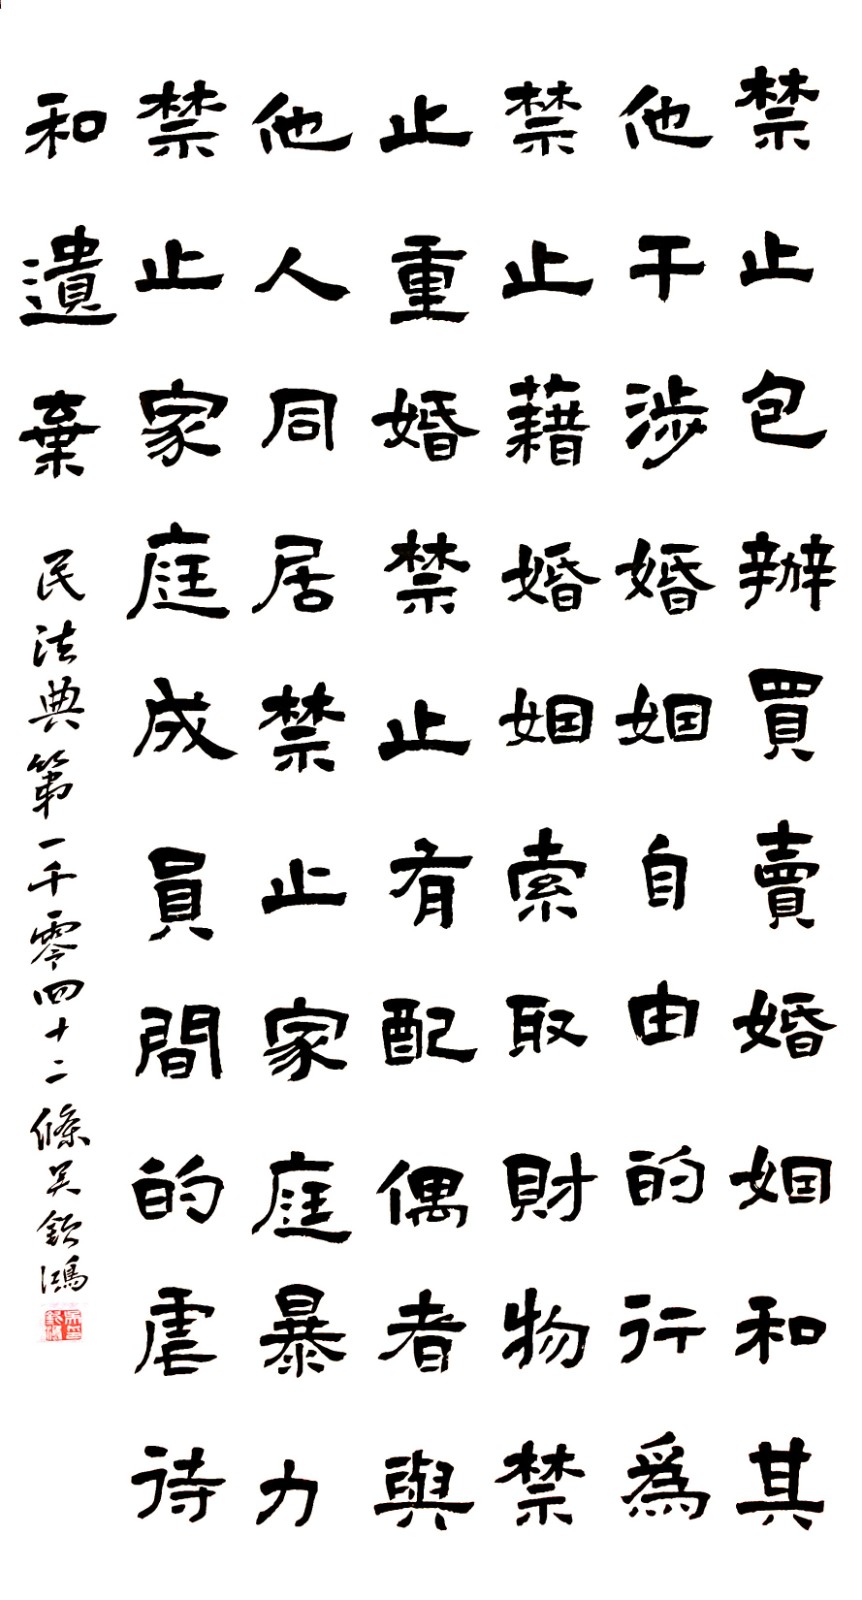 禁止包辦買賣婚姻和其
他干涉婚姻自由的行為
禁止藉婚姻索取財物禁
止重婚禁止有配偶者與
他人同居禁止家庭暴力
禁止家庭成員間的虐待
和遺棄
民法典第一千零四十二條吴欽鴻